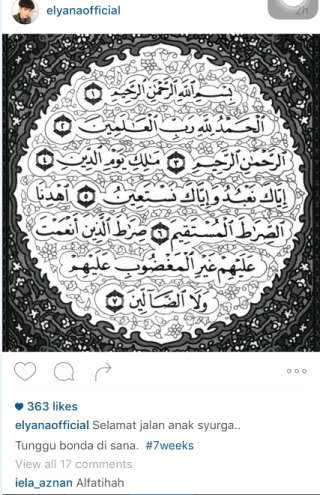 elyanaofficial
2h
بِسْمِ اللَّهِ الرَّحْمَٰنِ الرَّحِيمِ ١
الْحَمْدُ لِلَّهِ رَبِّ الْعَالَمِينَ ٢
الرَّحْمَٰنِ الرَّحِيمِ ٣ مَالِكِ يَوْمِ الدِّينِ ٤
إِيَّاكَ نَعْبُدُ وَإِيَّاكَ نَسْتَعِينُ ٥ اهْدِنَا
الصِّرَاطَ الْمُسْتَقِيمَ ٦ صِرَاطَ الَّذِينَ أَنْعَمْتَ
عَلَيْهِمْ غَيْرِ الْمَغْضُوبِ عَلَيْهِمْ
وَلَا الضَّالِّينَ ٧
363 likes
elyanaofficial Selamat jalan anak syurga..
Tunggu bonda di sana. #7weeks
View all 17 comments
iela_aznan Alfatihah